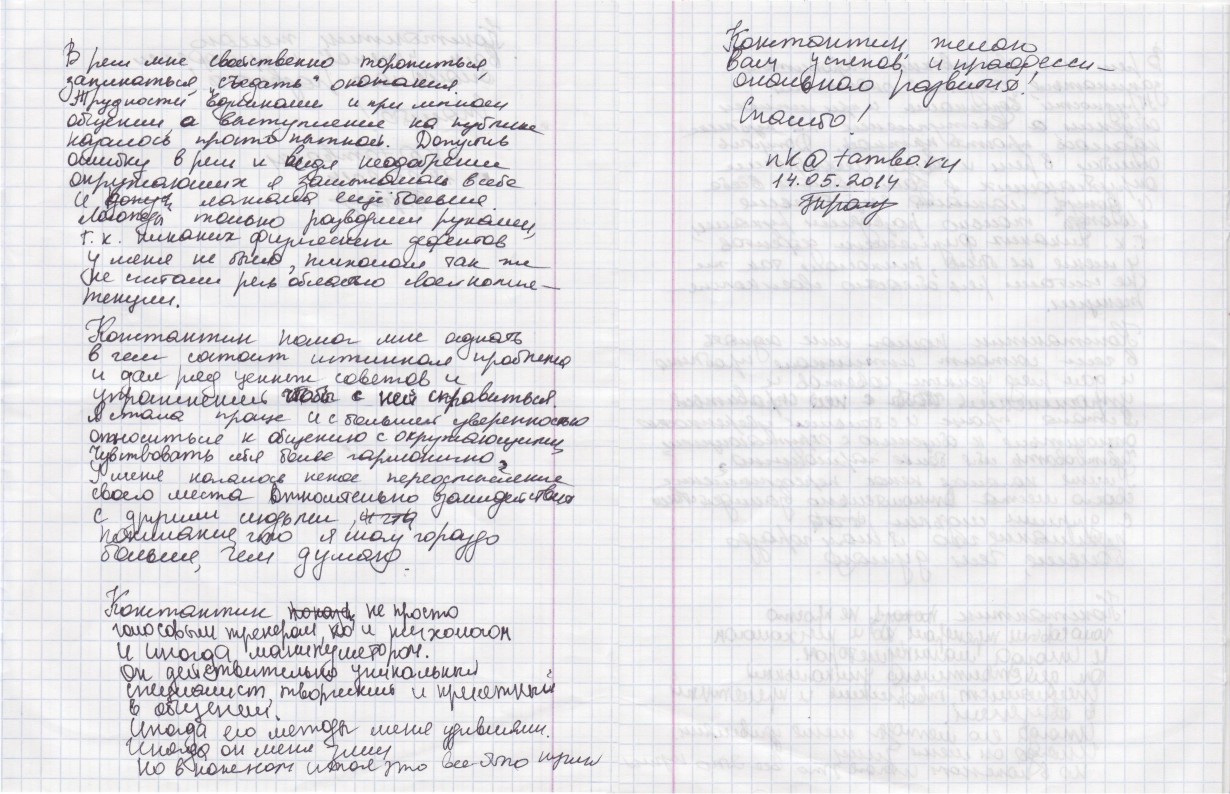 В речи мне свойственно торопиться,
запинаться, "съедать" окончания.
Трудности возникали и при личном
общении а выступление на публике
казалось просто пыткой. Допустив
ошибку в речи и видя неодобрение
окружающих я зажималась в себе
и лажала ещё больше.
Логопеды только разводили руками,
т.к. никаких физических дефектов
у меня не было, психологи так же
не считали речь областью своей компе-
тенции.
Константин помог мне осознать
в чем состоит истинная проблема
и дал ряд ценных советов и
упражнений чтобы с ней справиться.
Я стала проще и с большей уверенностью
относиться к общению с окружающими,
чувствовать себя более гармонично.
У меня началось некое переосмысление
своего места относительно взаимодействия
с другими людьми,
понимание что я могу гораздо
больше, чем думаю.
Константин не просто
голосовым тренером, но и психологом
и иногда манипулятором.
Он действительно уникальный
специалист, творческий и приятный
в общении.
Иногда его методы меня удивляли.
Иногда он меня злил
Но в конечном итоге это все
Константин, желаю
вам успехов и професси-
онального развития!
Спасибо!
nk@tamba.ru
14.05.2014